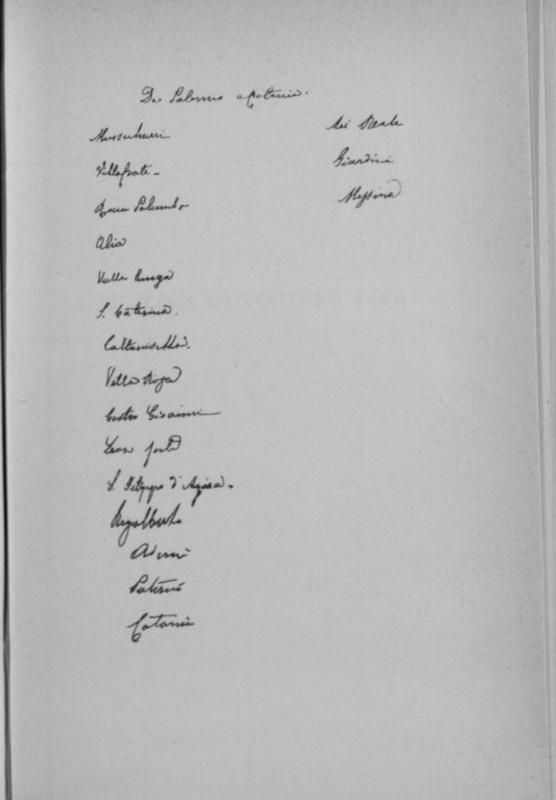 Da Palermo a Catania.
Villafrati -
Rocca Palumbo
Alia
Valle lunga
S. Caterina.
Caltanisetta.
Villa Rosa
Castro Giovanni
Leon forte
S. Filippo d'Agirà.
Regalbuto
Adernò
Paternò
Catania
Aci Reale
Giardini
Messina